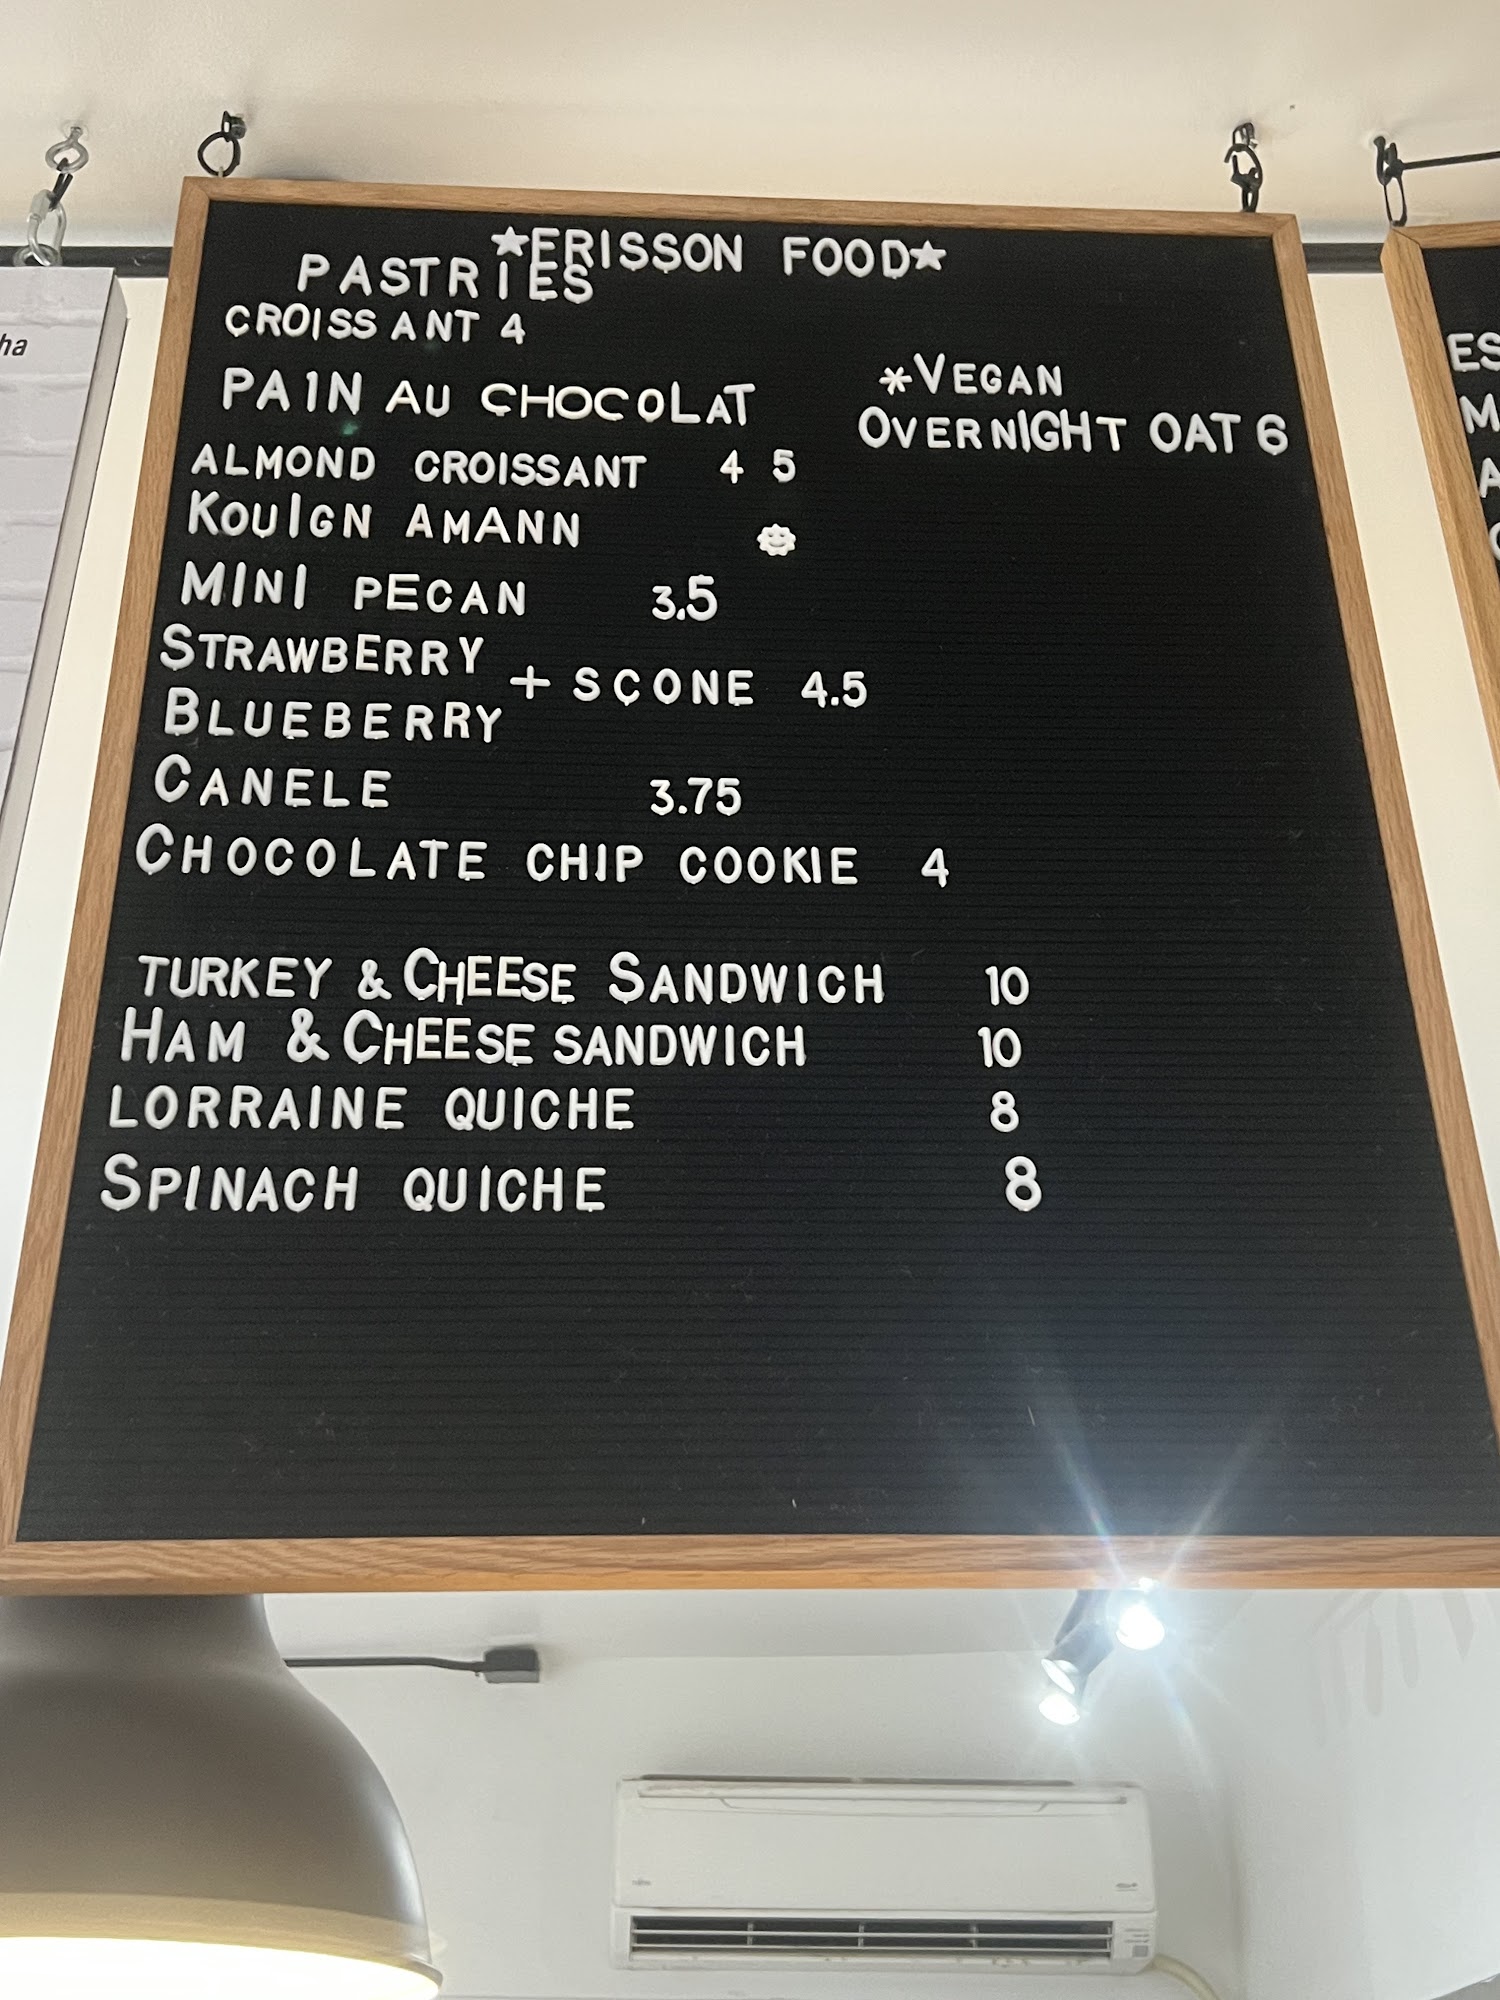 ★ERISSON FOOD★
PASTRIES
CROISSANT 4
PAIN AU CHOCOLAT
ALMOND CROISSANT 4 5
KOUIGN AMANN
MINI PECAN 3.5
STRAWBERRY
+ SCONE 4.5
BLUEBERRY
CANELE 3.75
CHOCOLATE CHIP COOKIE 4
TURKEY & CHEESE SANDWICH 10
HAM & CHEESE SANDWICH 10
LORRAINE QUICHE 8
SPINACH QUICHE 8
*VEGAN
OVERNIGHT OAT 6
ha
ES
M
A